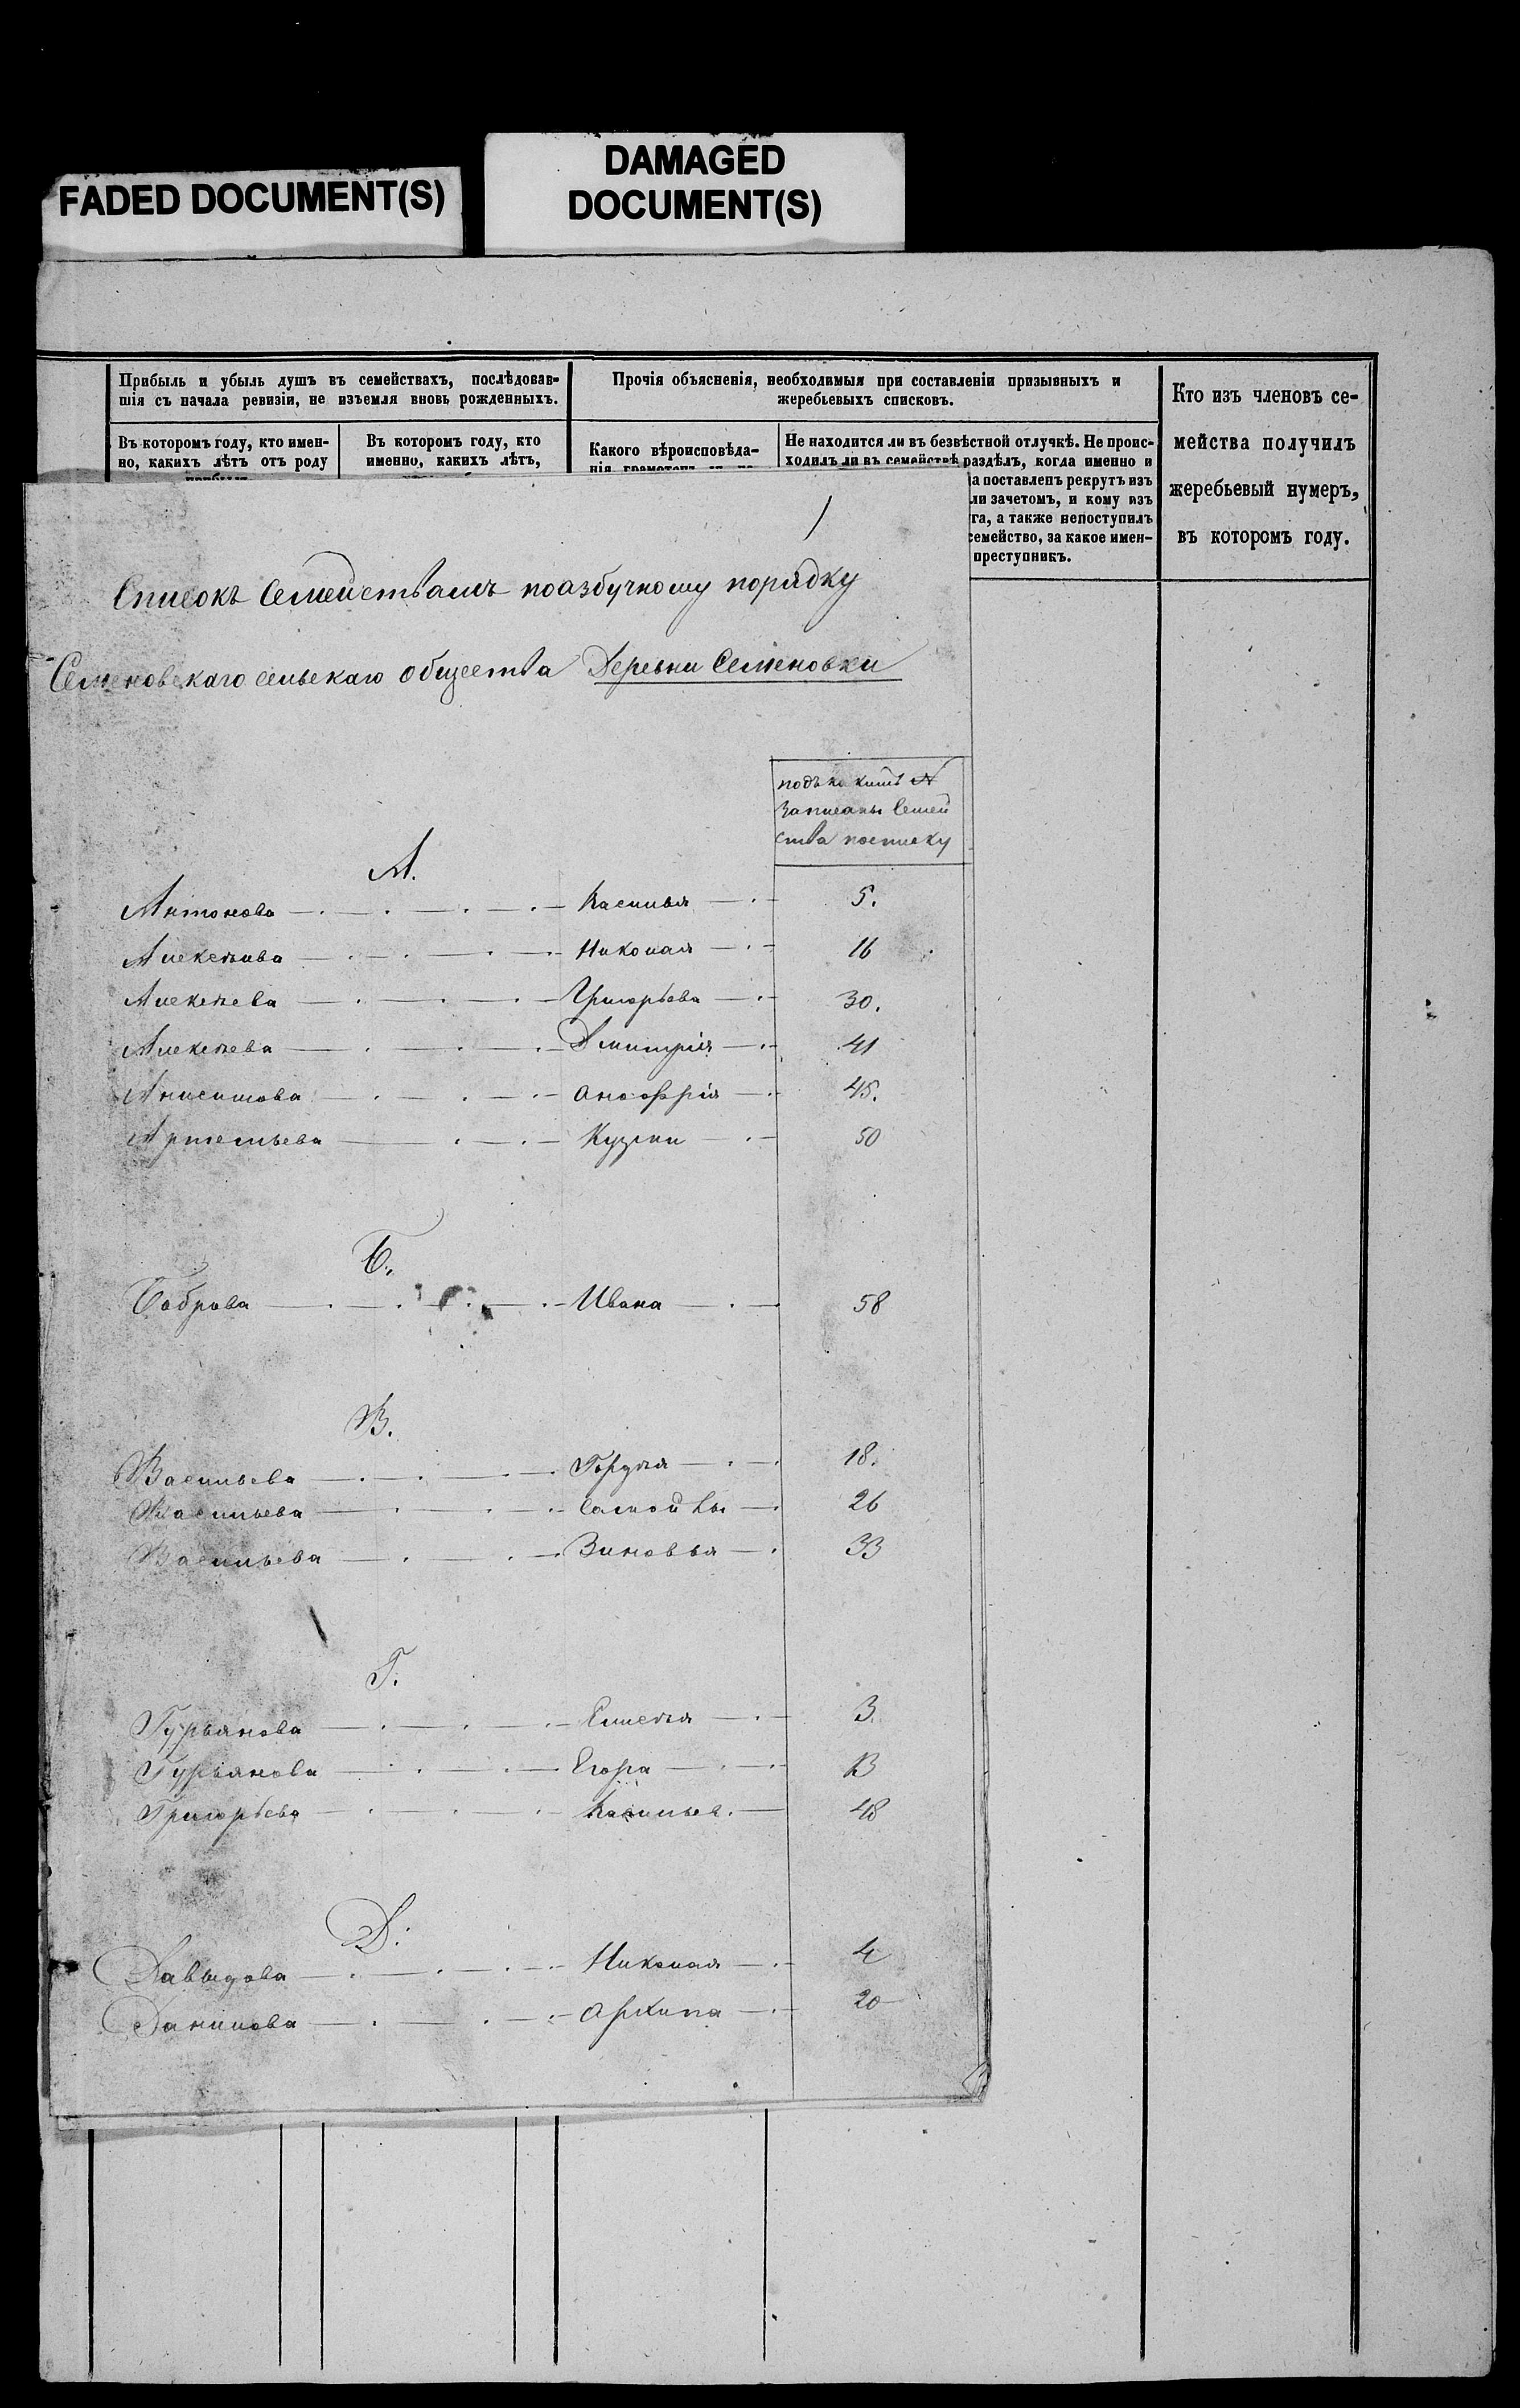 FADED DOCUMENT(S)
DAMAGED
DOCUMENT(S)
Прибыль и убыль душъ въ семействахъ, послѣдовав-
шія съ начала ревизіи, не изъемля вновь рожденныхъ.
Прочія объясненія, необходимыя при составленіи призывныхъ и
жеребьевыхъ списковъ.
Кто изъ членовъ се-
мейства получилъ
жеребьевый нумеръ,
въ которомъ году.
Въ которомъ году, кто имен-
но, какихъ лѣтъ отъ роду
Въ которомъ году, кто
именно, какихъ лѣтъ,
Какого вѣроисповѣда-
нія грамотенъ
Не находится ли въ безвѣстной отлучкѣ. Не проис-
ходилъ ли въ семействѣ раздѣлъ, когда именно и
а поставленъ рекрутъ изъ
ли зачетомъ, и кому изъ
га, а также непоступилъ
семейство, за какое имен-
преступникъ.
1
Списокъ Семействамъ поазбучному порядку
Семеновскаго сельскаго общества Деревни Семеновки
подъ №
Записаны Семей
ства посписку
А.
Антонова Василья 5.
Алексѣива Николая 16
Алексѣева Григорьева 30.
Алексѣева Дмитрія 41
Анисимова Анофрія 45.
Артемьева Кузми 50
Б.
Боброва Ивана 58
В.
Васильева Гордѣя 18.
Васильева Самойлы 26
Васильева Зиновья 33
Г.
Гурьянова Елисѣя 3
Гурьянова Егора 13
Григорьева Васильев. 48
Д.
Давыдова Николая 4
Данилова Архипа 20